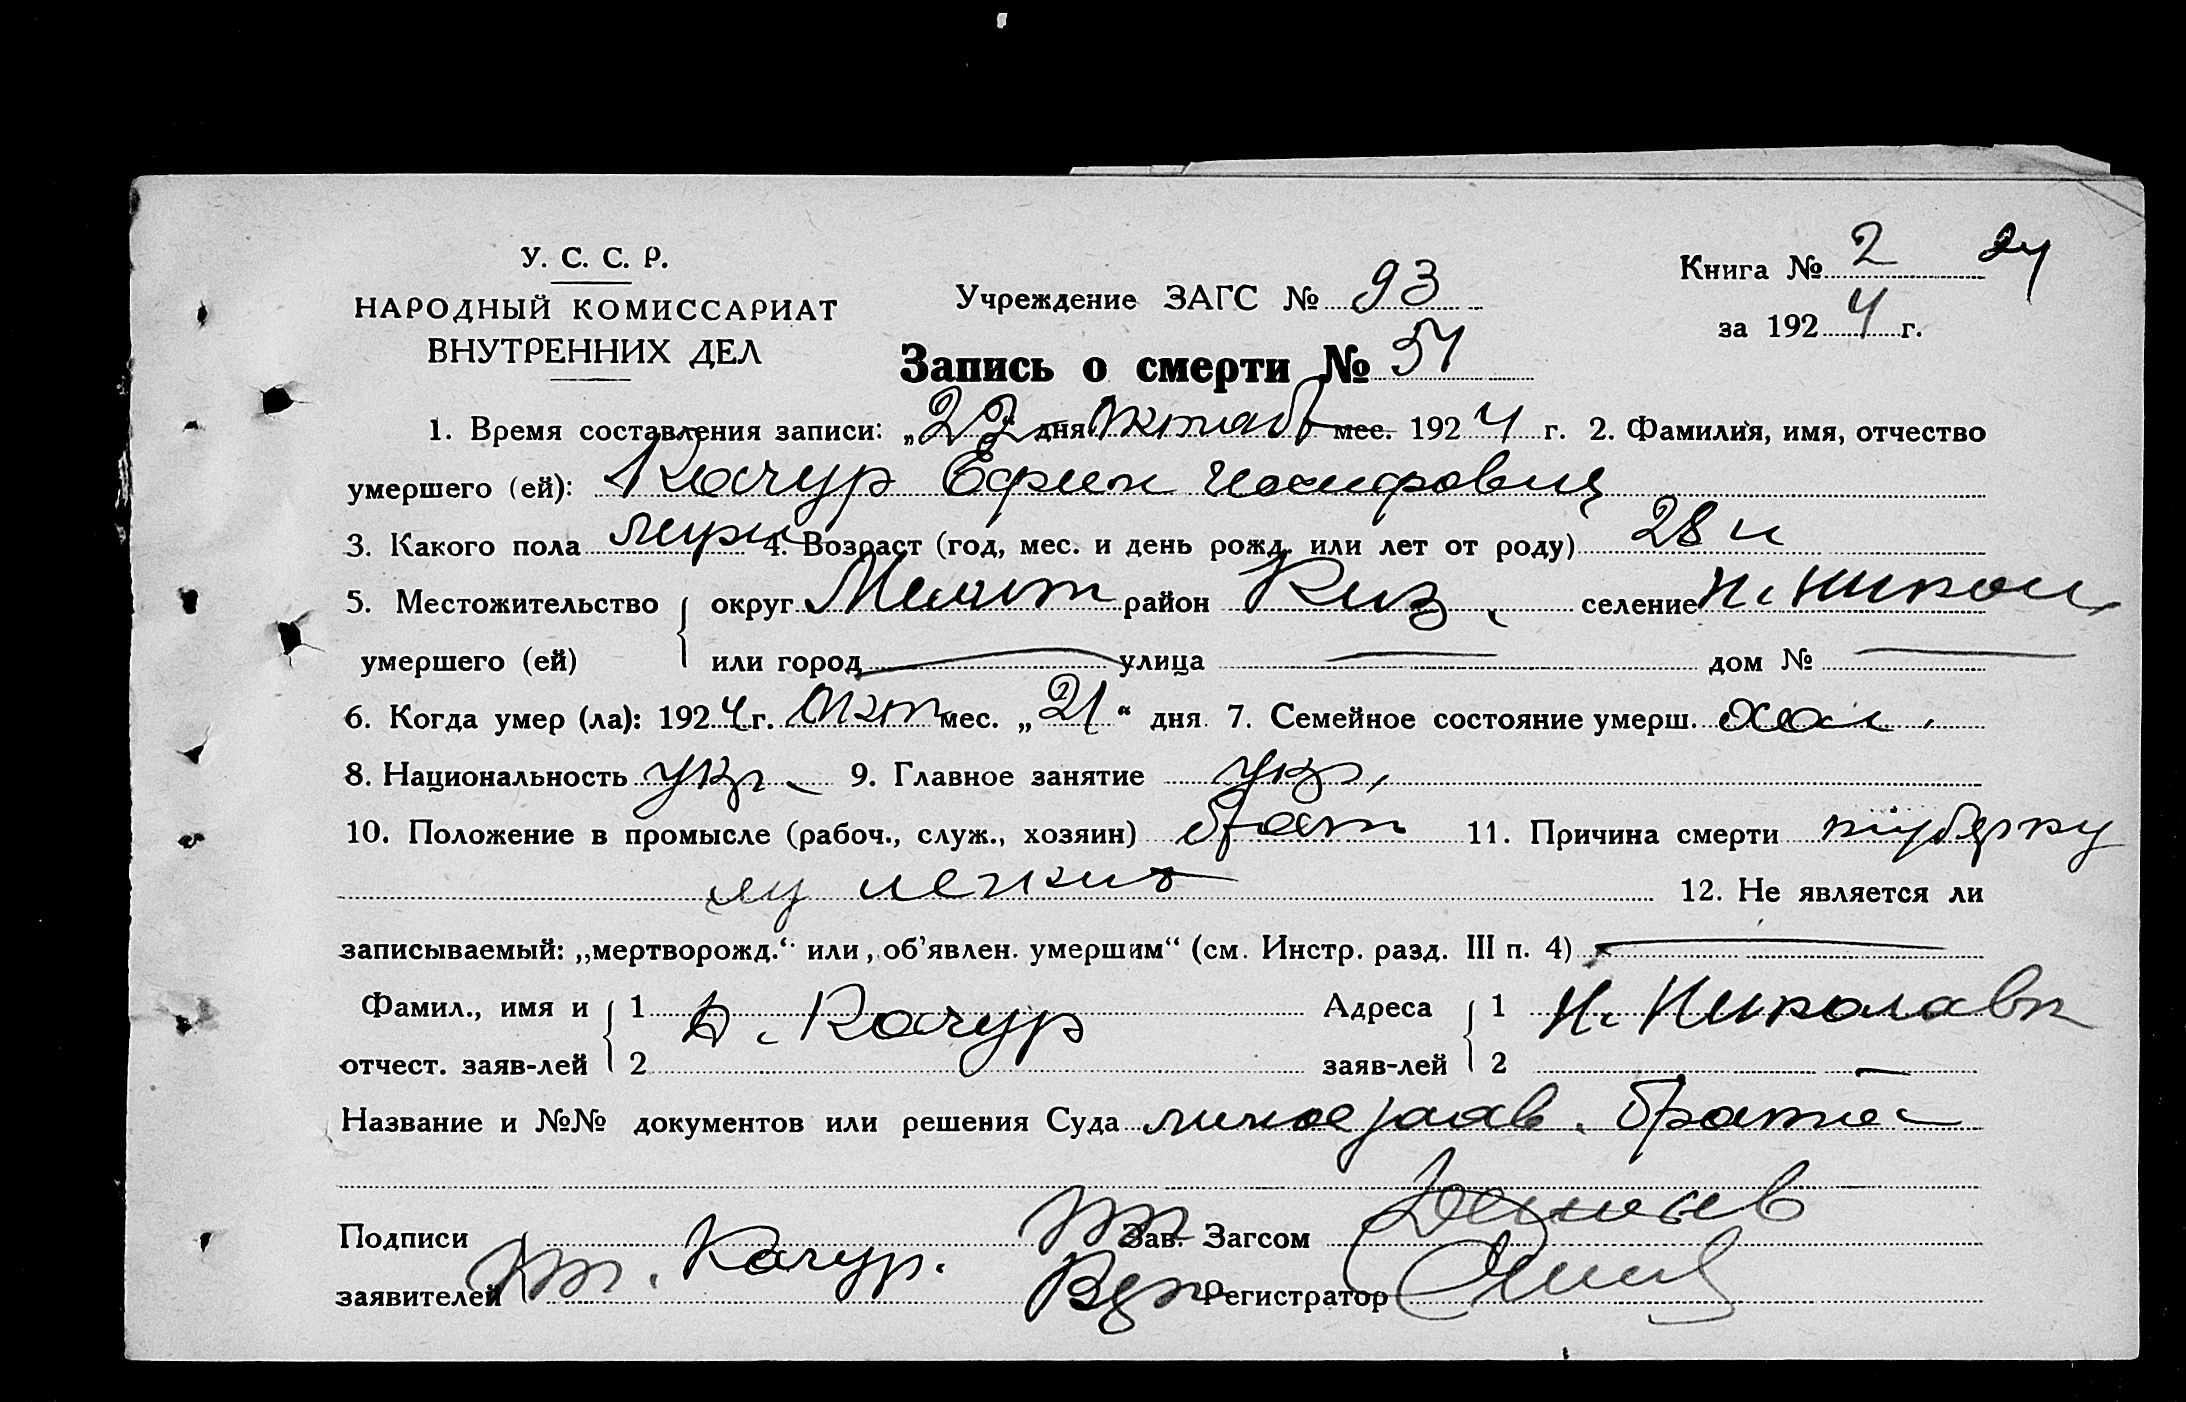 У. С. С. Р.
НАРОДНЫЙ КОМИССАРИАТ
ВНУТРЕННИХ ДЕЛ
Учреждение ЗАГС № 93
Книга № 2 24
за 1924 г.
Запись о смерти № 54
1. Время составления записи: „22 дня Октяб мес. 1924 г. 2. Фамилия, имя, отчество
умершего (ей): Качур Ефим Иосифович
3. Какого пола 4. Возраст (год, мес. и день рожд. или лет от роду) 28 л
5. Местожительство округ Мелит район селение Н. Никол
умершего (ей) или город улица дом №
6. Когда умер (ла): 1924 г. Окт мес. „21“ дня 7. Семейное состояние умерш. хол.
8. Национальность укр. 9. Главное занятие
10. Положение в промысле (рабоч., служ., хозяин) 11. Причина смерти туберку
лез легких 12. Не является ли
записываемый: „мертворожд.“ или „об'явлен. умершим“ (см. Инстр. разд. III п. 4)
Фамил., имя и 1 Качур Адреса 1 Н. Николавк
отчест. заяв-лей 2 заяв-лей 2
Название и №№ документов или решения Суда личное заяв. брата
Подписи Зав. Загсом
заявителей Качур. Регистратор